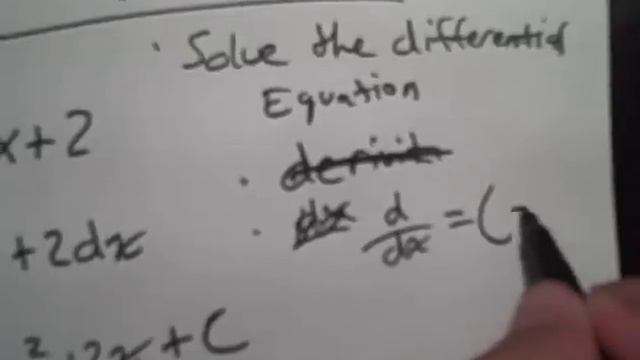 · Solve the differential
Equation
x+2
·
+2dx
· d/dx = (
² + 2x + C